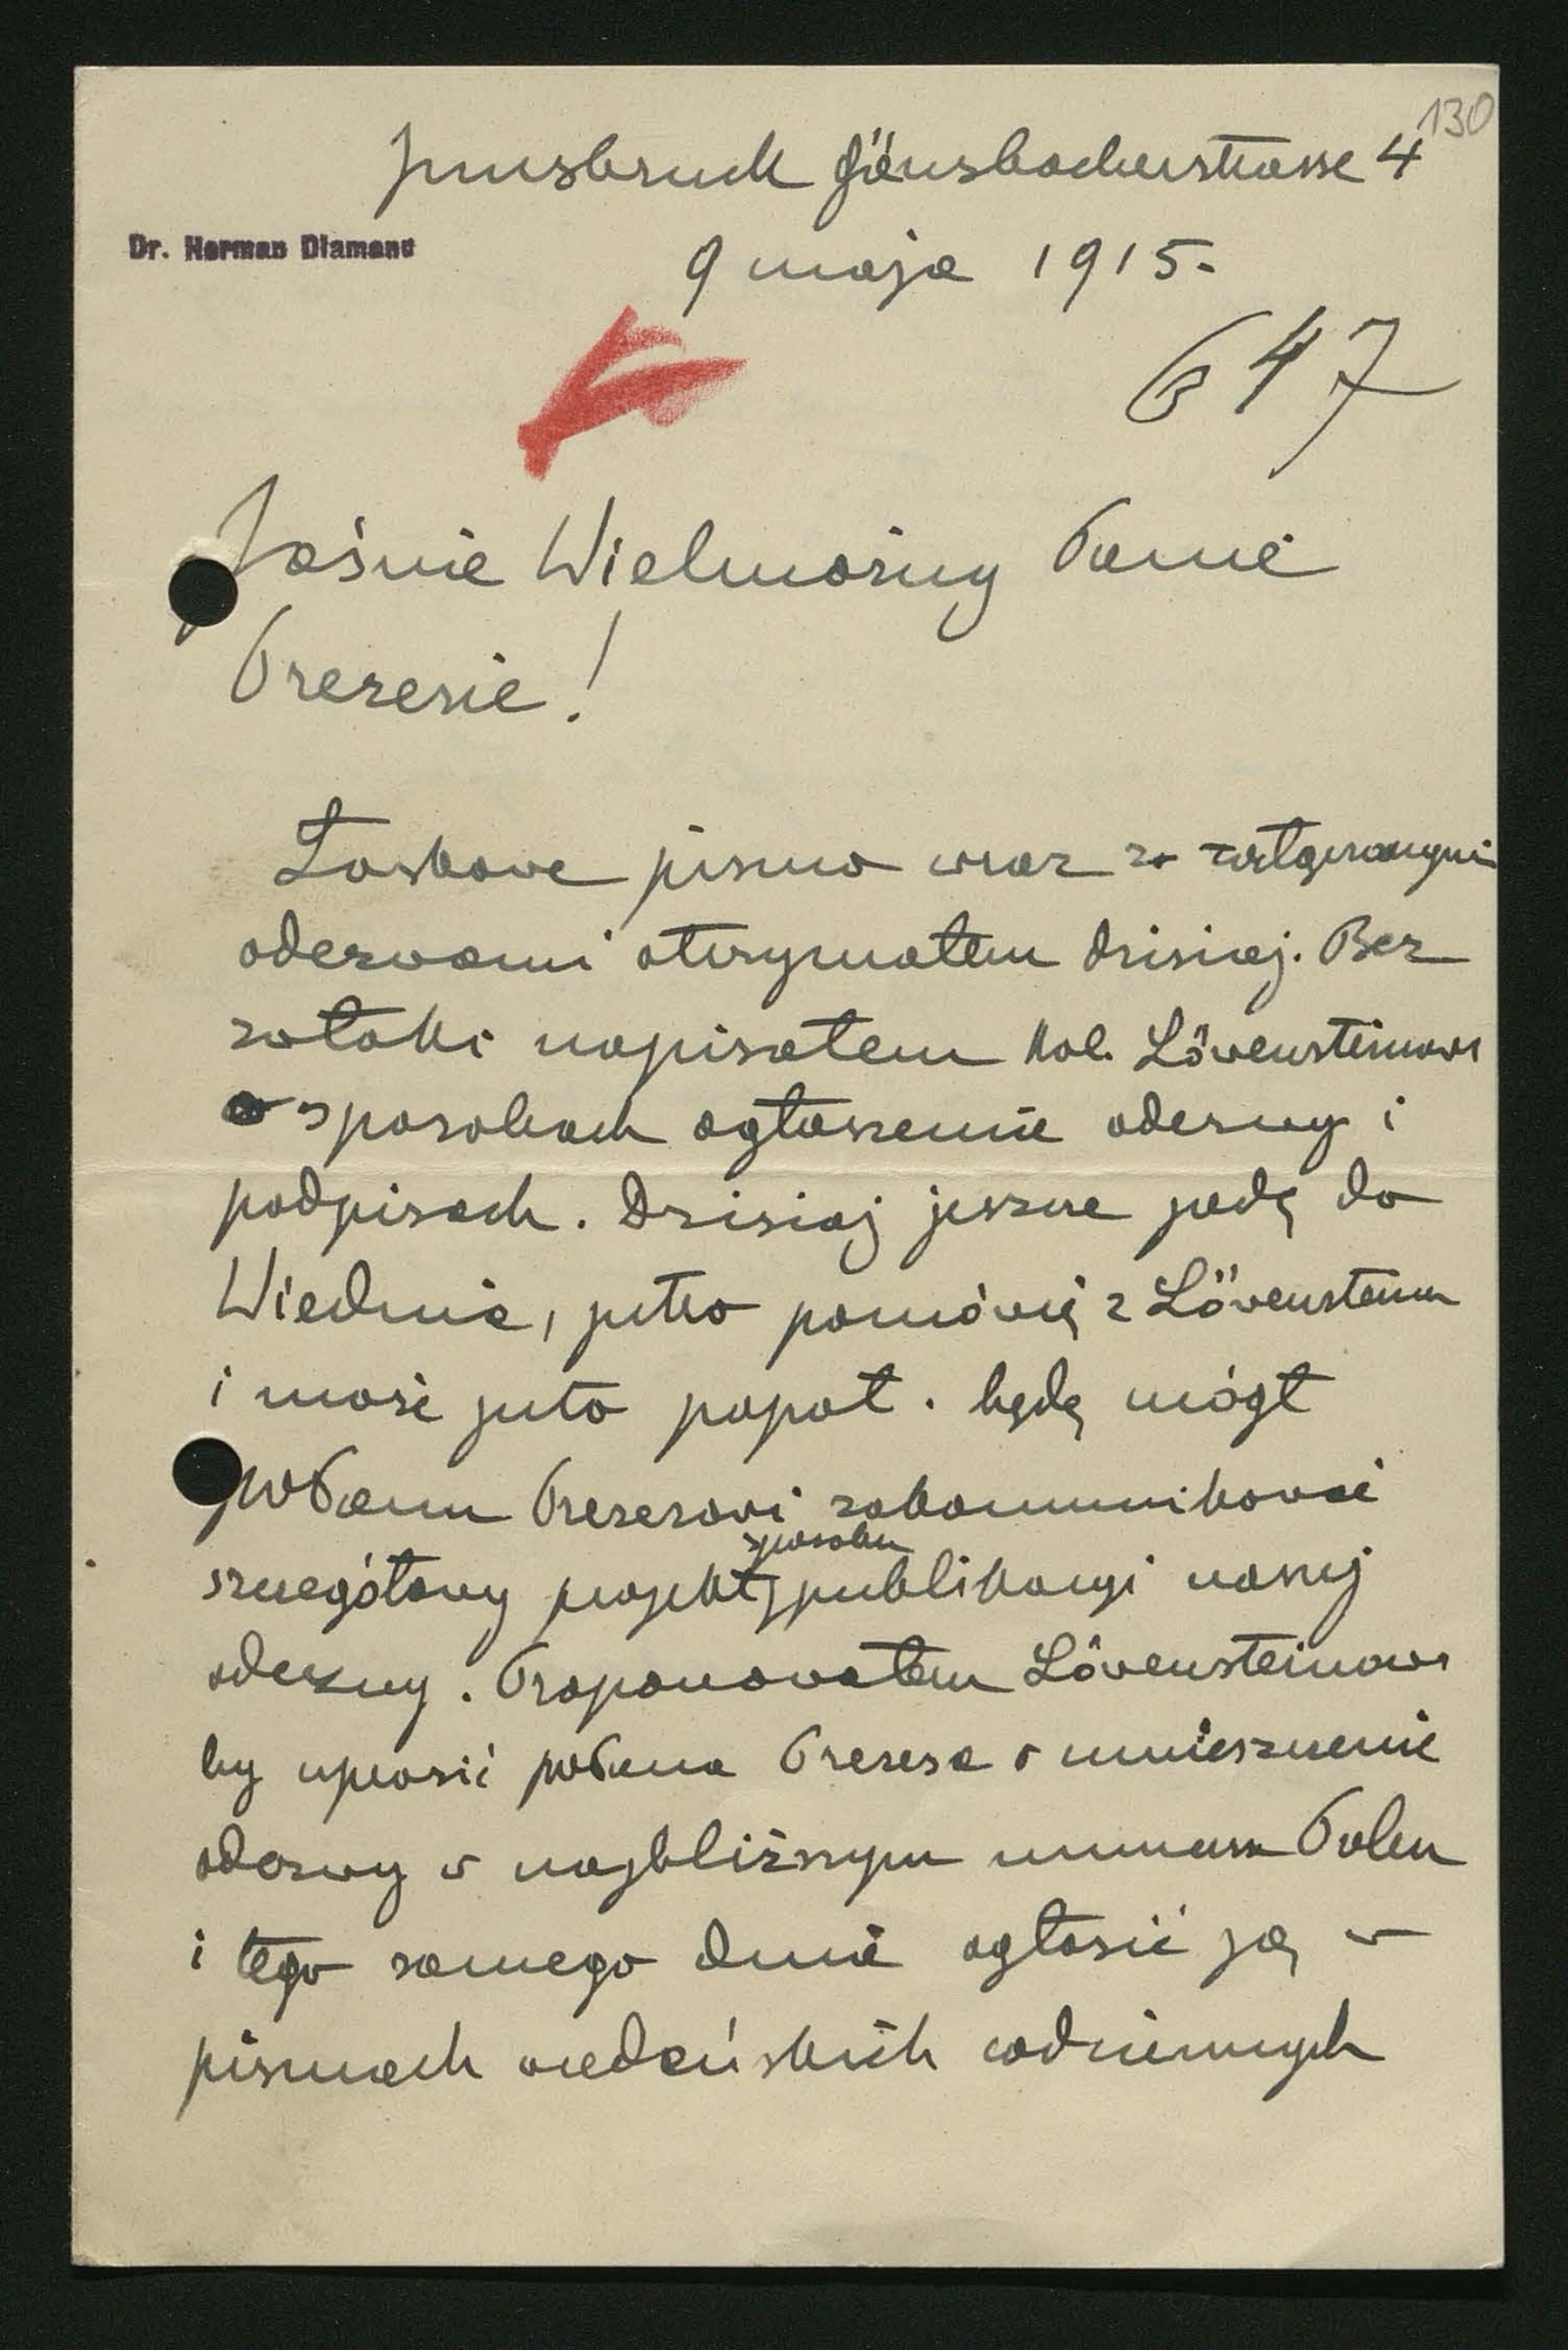 130
Innsbruck Gänsbacherstrasse 4
Dr. Herman Diamand
9 maja 1915.
647
Jaśnie Wielmożny Panie
Prezesie!
Łaskawe pismo wraz z załączonymi
odezwami otrzymałem dzisiaj. Bez
zwłoki napisałem kol. Löwensteinowi
o sposobach ogłoszenia odezwy i
podpisach. Dzisiaj jeszcze jadę do
Wiednia, jutro pomówię z Löwensteinem
i może jutro popoł. będę mógł
Panu Prezesowi zakomunikować
sposobu
szczegółowy projekt publikacyi naszej
odezwy. Proponowałem Löwensteinowi
by uprosić Pana Prezesa o umieszczenie
odezwy w najbliższym numerze Polen
i tego samego dnia ogłosić ją w
pismach wiedeńskich codziennych